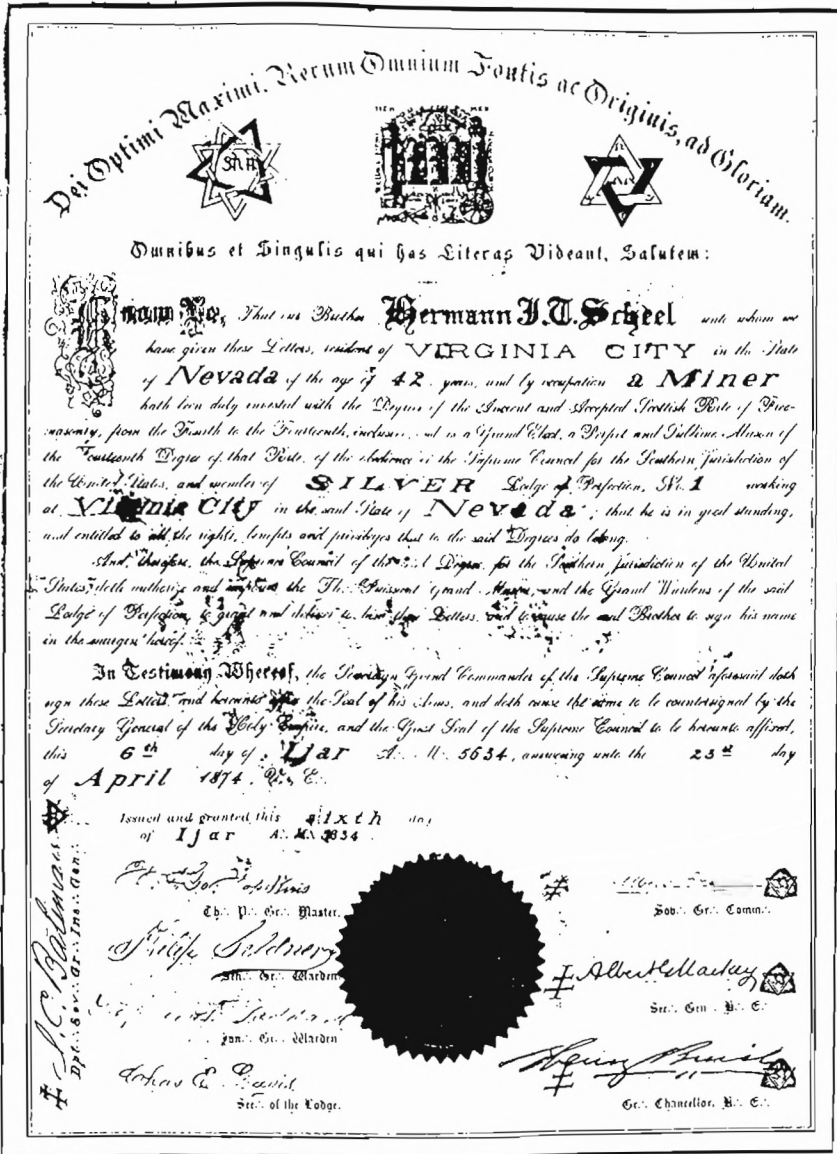 Dei Optimi Maximi, Rerum Omnium Fontis ac Originis, ad Gloriam.
Omnibus et Singulis qui has Literas Videant, Salutem:
Know Ye, That our Brother Hermann J.T. Scheel unto whom we
have given these Letters, resident of VIRGINIA CITY in the State
of Nevada of the age of 42 years, and by occupation a Miner
hath been duly invested with the Degrees of the Ancient and Accepted Scottish Rite of Free-
masonry, from the Fourth to the Fourteenth, inclusive, and is a Grand Elect, a Perfect and Sublime Mason of
the Fourteenth Degree of that Rite, of the obedience of the Supreme Council for the Southern Jurisdiction of
the United States, and member of SILVER Lodge of Perfection, No. 1 working
at Virginia City in the said State of Nevada; that he is in good standing,
and entitled to all the rights, benefits and privileges that to the said Degrees do belong.
And, therefore, the Supreme Council of the Degree, for the Southern Jurisdiction of the United
States, doth authorize and empower the Th. Puissant Grand Master, and the Grand Wardens of the said
Lodge of Perfection, to grant and deliver to him these Letters, and to cause the said Brother to sign his name
in the margin hereof.
In Testimony Whereof, the Sovereign Grand Commander of the Supreme Council aforesaid doth
sign these Letters, and hereunto affix the Seal of his Arms, and doth cause the same to be countersigned by the
Secretary General of the Holy Empire, and the Great Seal of the Supreme Council to be hereunto affixed,
this 6th day of Ijar A∴ M∴ 5634, answering unto the 23rd day
of April 1874, V∴ E∴
Issued and granted this sixth day
of Ijar A∴ M∴ 5634
Th∴ P∴ Gr∴ Master.
Sov∴ Gr∴ Comm∴
Philip Seldner
Sen∴ Gr∴ Warden
Albert G Mackey
Sec∴ Gen∴ H∴ E∴
Jun∴ Gr∴ Warden
Sec∴ of the Lodge.
Gr∴ Chancellor, H∴ E∴
Dpt∴ Sov∴ Gr∴ Ins∴ Gen∴